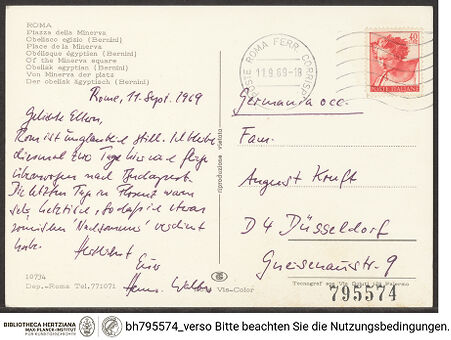 ROMA
Piazza della Minerva
Obelisco egizio (Bernini)
Place de la Minerva
Obélisque égyptien (Bernini)
Of the Minerva square
Obelisk egyptian (Bernini)
Von Minerva der platz
Der obelisk ägyptisch (Bernini)
Rome, 11. Sept. 1969
Geliebte Eltern,
Rom ist unglaublich still. Ich bleibe
diesmal zwo Tage hier und fliege
übermorgen nach Budapest.
Die letzten Tage in Florenz waren
sehr hektisch, so daß ich etwas
römischen 'Nachsommer' verdient
habe.
Herzlichst
Euer
Hans-Walter
10734
Dep.-Roma Tel.771071
riproduzione vietata
Vis-Color
POSTE ROMA FERR. CORRISP.
11.9.69-18
POSTE ITALIANE
Germania occ.
Fam.
August Kruft
D 4 Düsseldorf
Gneisenaustr. 9
795574
BIBLIOTHECA HERTZIANA
MAX-PLANCK-INSTITUT
FÜR KUNSTGESCHICHTE
bh795574_verso Bitte beachten Sie die Nutzungsbedingungen.